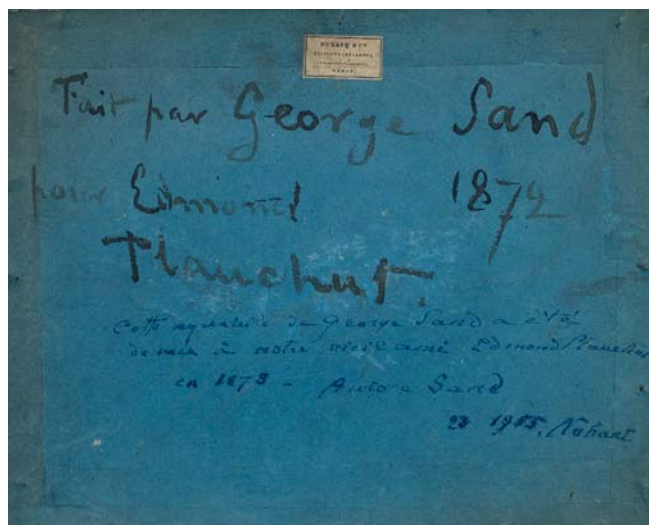 Fait par George Sand
pour Edmond 1872
Plauchut.
Cette aquarelle de George Sand a été
donnée à notre vieil ami Edmond Plauchut
en 1873 - Aurore Sand
1955. Nohant